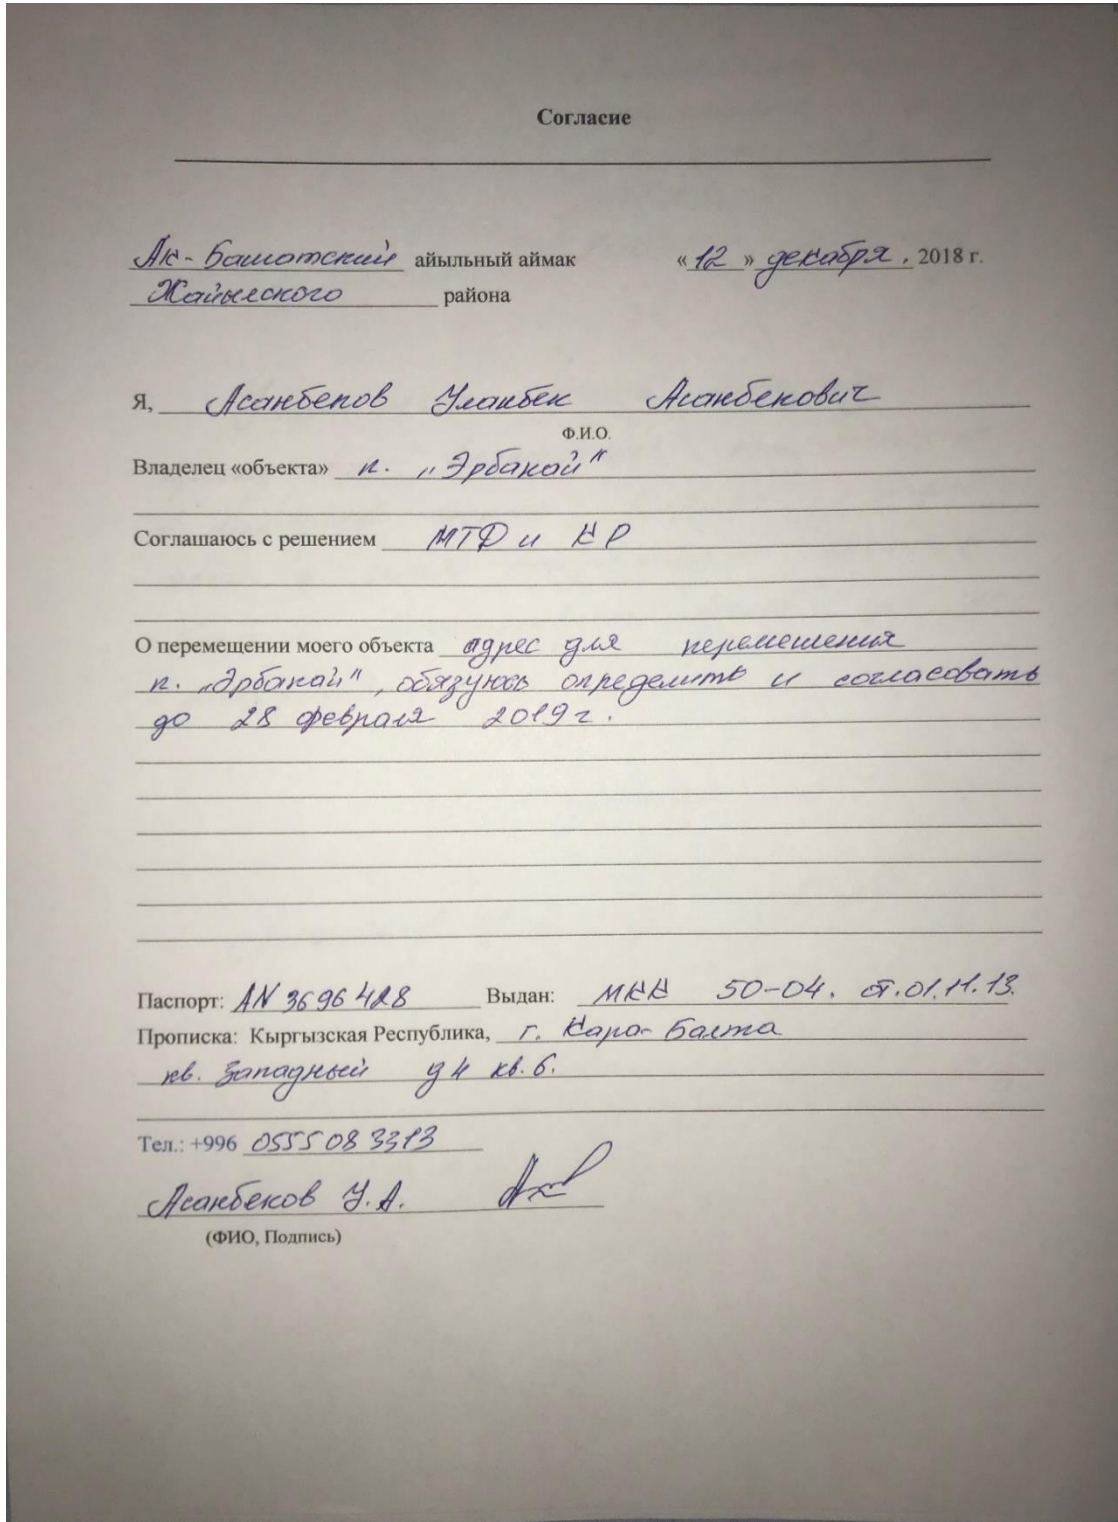 Согласие
Ак-Башатский айыльный аймак « 12 » декабря. 2018 г.
Жайылского района
Я, Асанбеков Уланбек Асанбекович
Ф.И.О.
Владелец «объекта» к. „Эрбакай"
Соглашаюсь с решением МТД и КР
О перемещении моего объекта адрес для перемешения
к. „Эрбакай", обязуюсь определить и согласовать
до 28 февраля 2019 г.
Паспорт: AN 3696428 Выдан: МКК 50-04. от.01.11.13.
Прописка: Кыргызская Республика, г. Кара-Балта
кв. Западный д 4 кв. 6.
Тел.: +996 0555 08 3313
Асанбеков У.А.
(ФИО, Подпись)